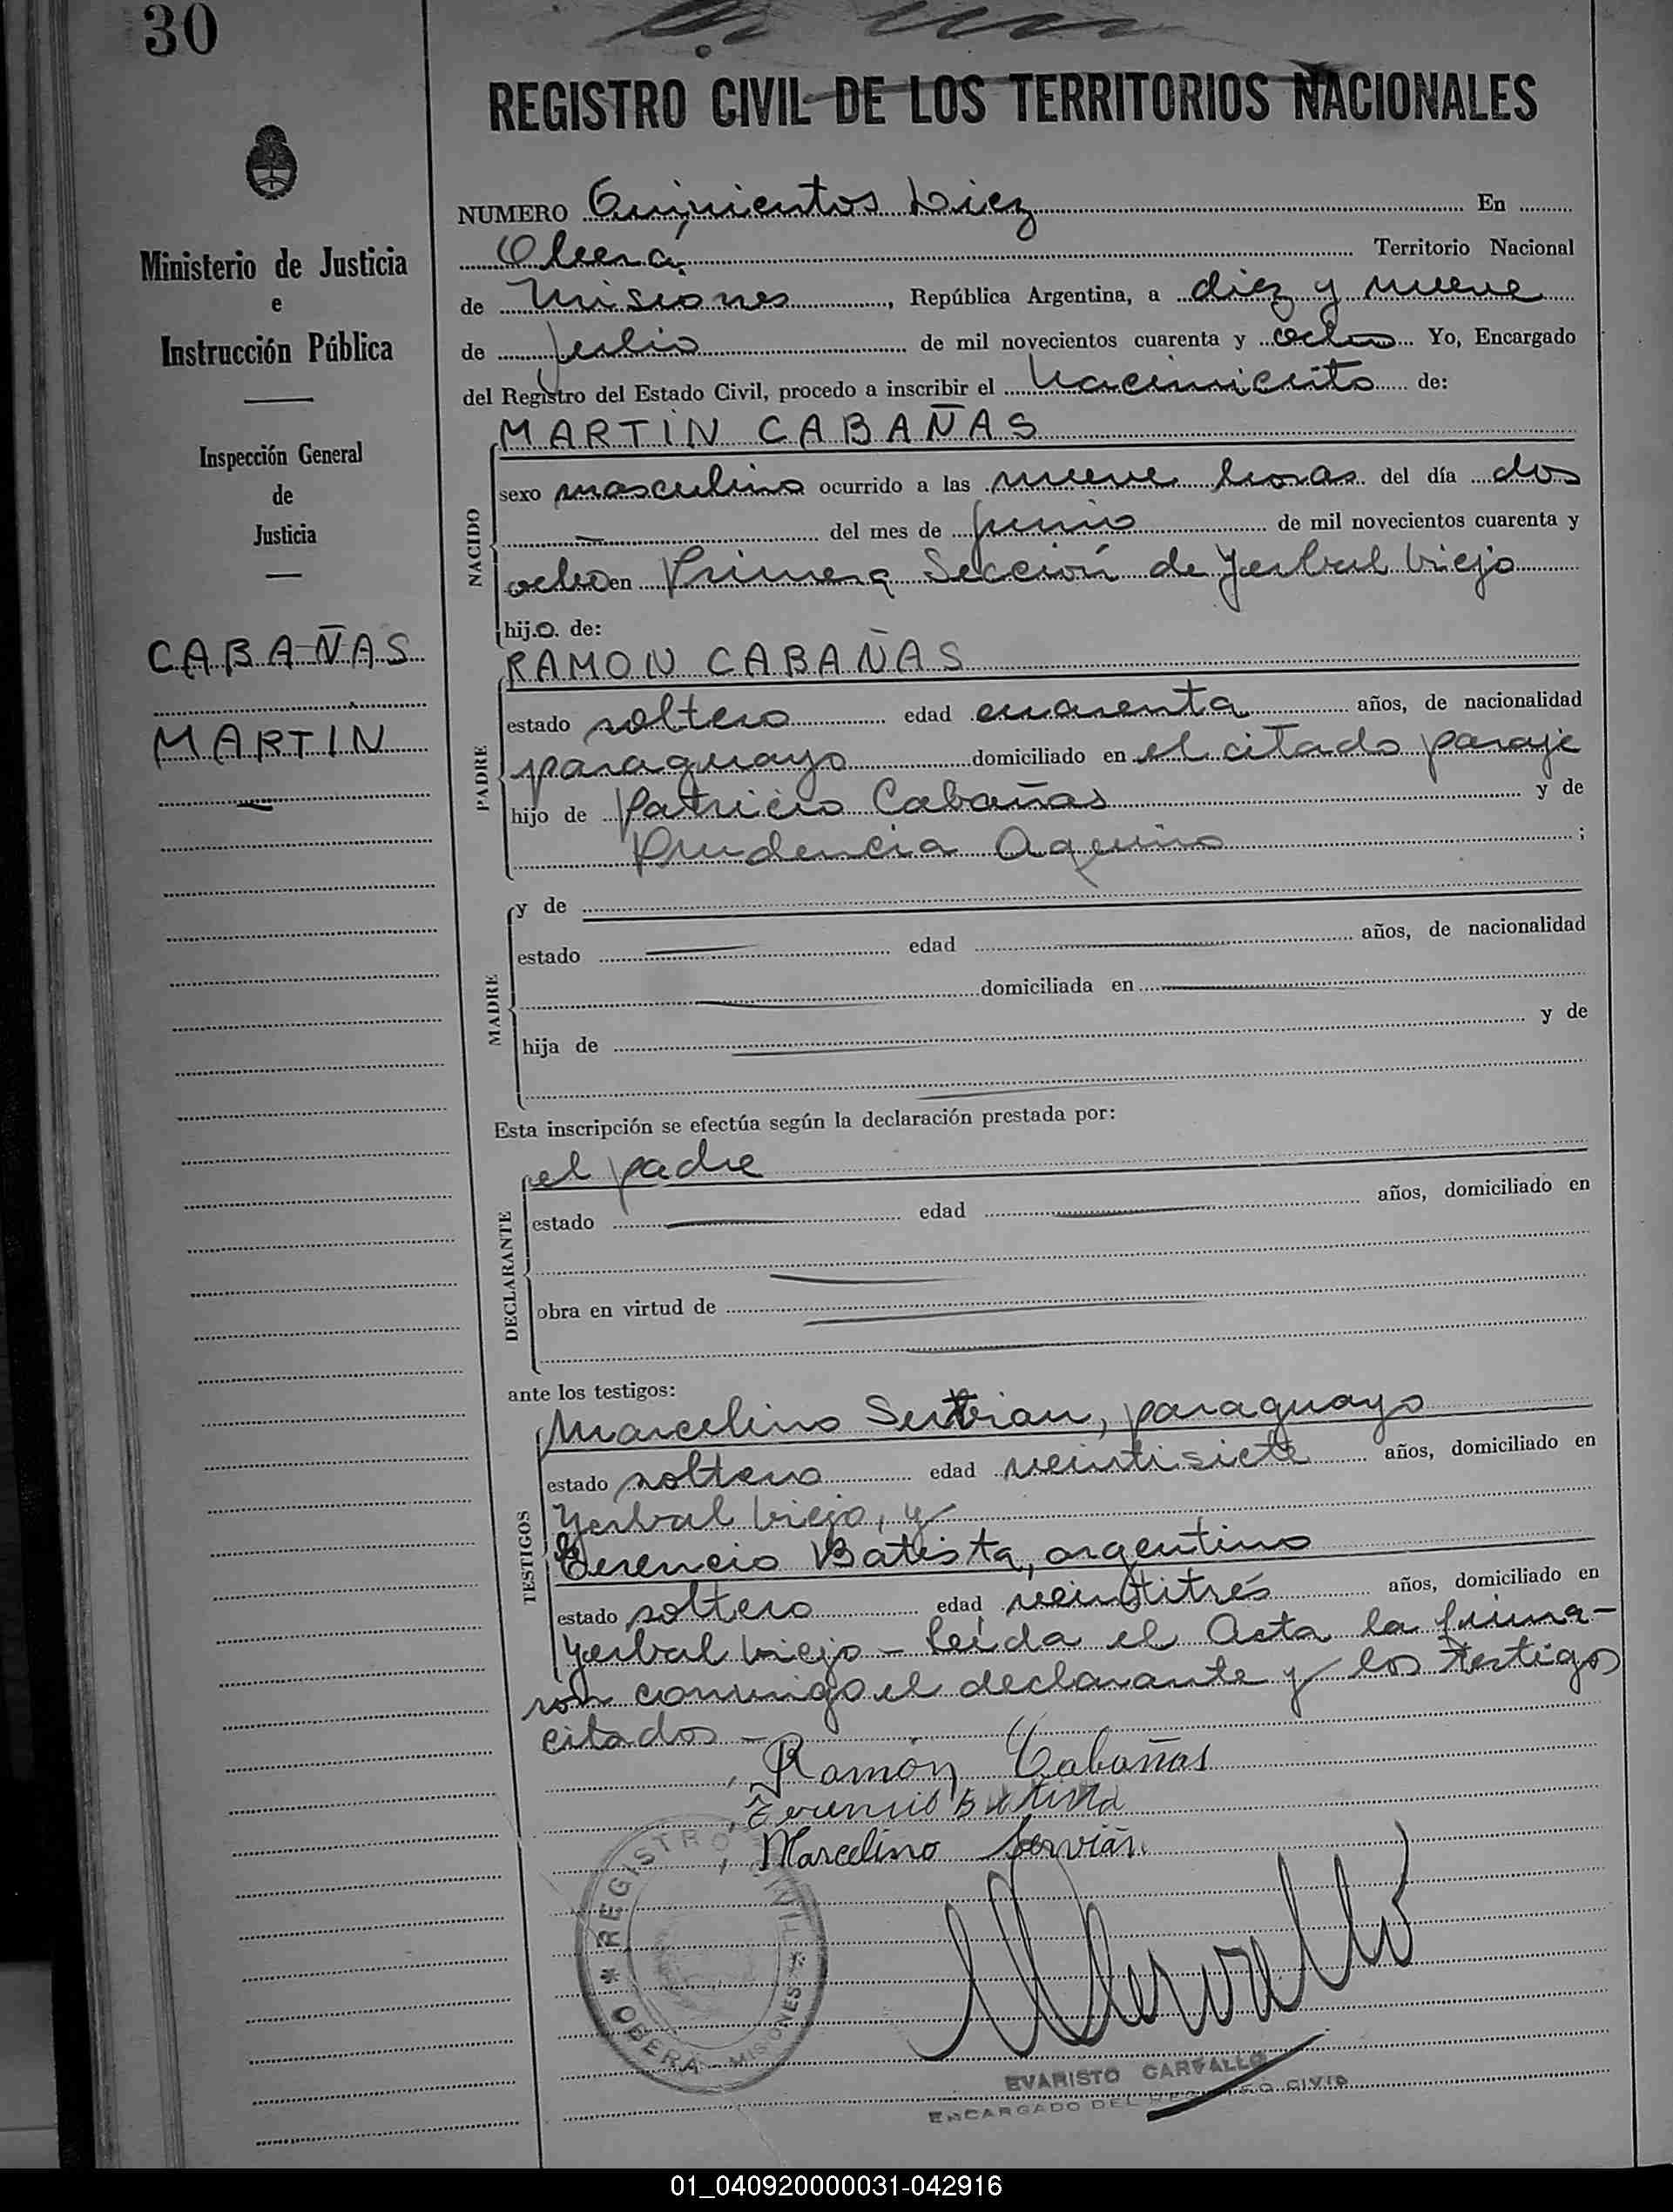 30
REGISTRO CIVIL DE LOS TERRITORIOS NACIONALES
Ministerio de Justicia
e
Instrucción Pública
Inspección General
de
Justicia
CABAÑAS
MARTIN
NUMERO Quinientos Diez En
Oberá Territorio Nacional
de Misiones, República Argentina, a diez y nueve
de Julio de mil novecientos cuarenta y ocho Yo, Encargado
del Registro del Estado Civil, procedo a inscribir el Nacimiento de:
MARTIN CABAÑAS
NACIDO
sexo masculino ocurrido a las nueve horas del día dos
del mes de junio de mil novecientos cuarenta y
ocho en Primera Sección de Yerbal Viejo
hijo de:
RAMON CABAÑAS
PADRE
estado soltero edad cuarenta años, de nacionalidad
paraguayo domiciliado en el citado paraje
hijo de Patricio Cabañas y de
Prudencia Aquino ;
MADRE
y de
estado edad años, de nacionalidad
domiciliada en
hija de y de
Esta inscripción se efectúa según la declaración prestada por:
el padre
DECLARANTE
estado edad años, domiciliado en
obra en virtud de
ante los testigos:
Marcelino Servian, paraguayo
TESTIGOS
estado soltero edad veintisiete años, domiciliado en
Yerbal Viejo, y
Gerencio Batista, argentino
estado soltero edad veintitrés años, domiciliado en
Yerbal Viejo - Leída el Acta la firma-
ron conmigo el declarante y los testigos
citados -
Ramón Cabañas
Batista
Marcelino Servián
REGISTRO CIVIL
* OBERÁ - MISIONES *
EVARISTO CARVALLO
ENCARGADO DEL REGISTRO CIVIL
01_040920000031-042916